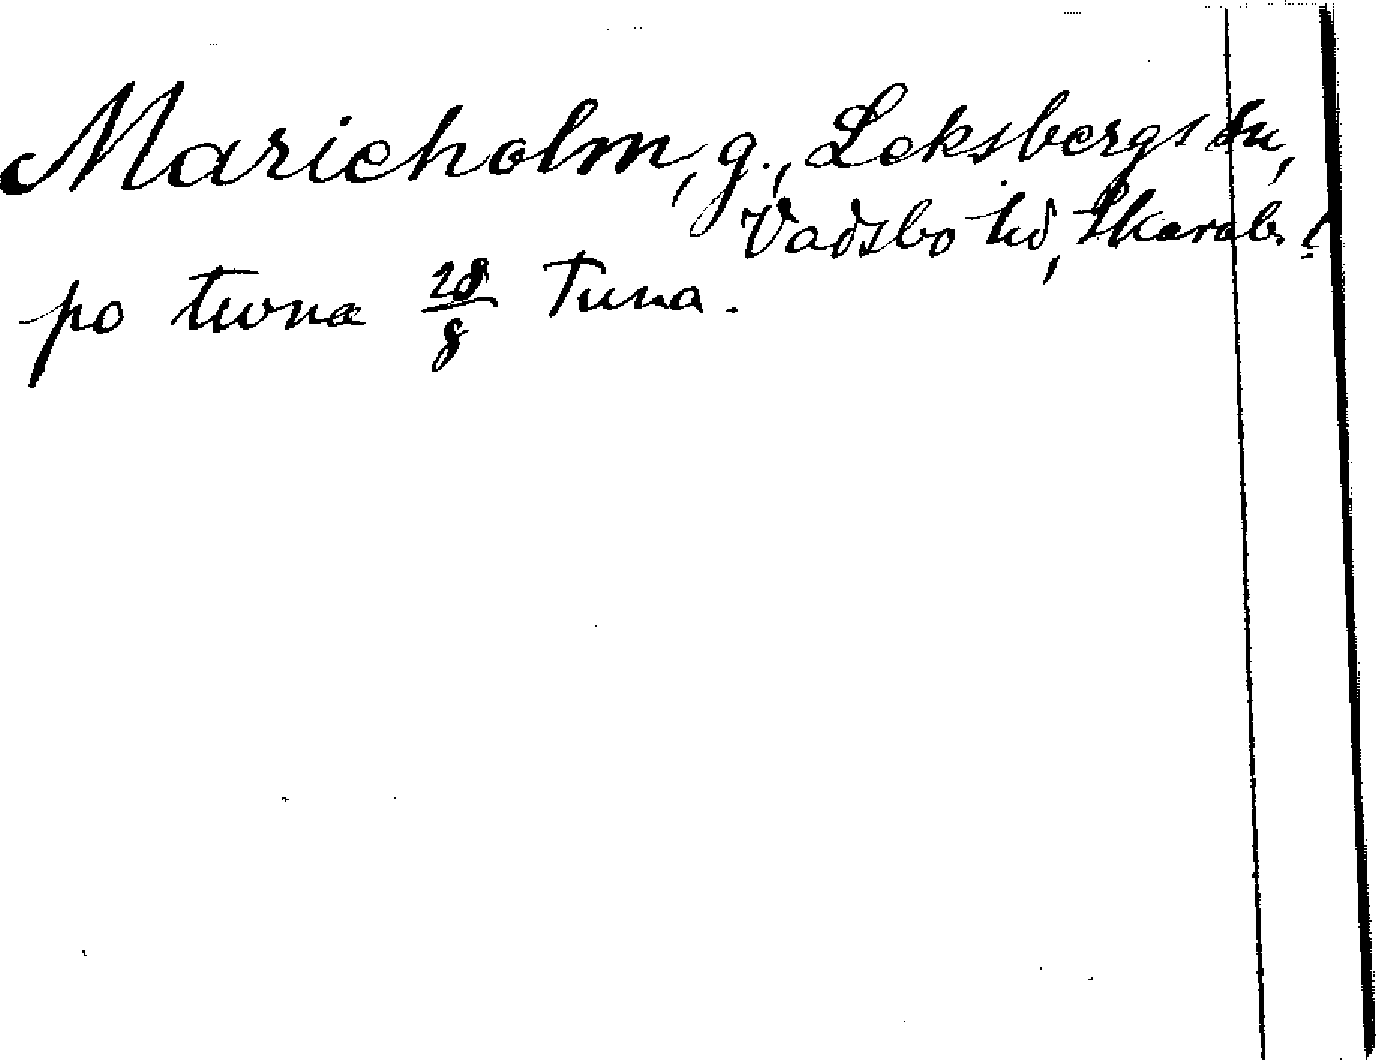 Marieholm, g., Leksbergs sn,
Vadsbo hd, Skarab. l.
po twna 28/8 Tuna.